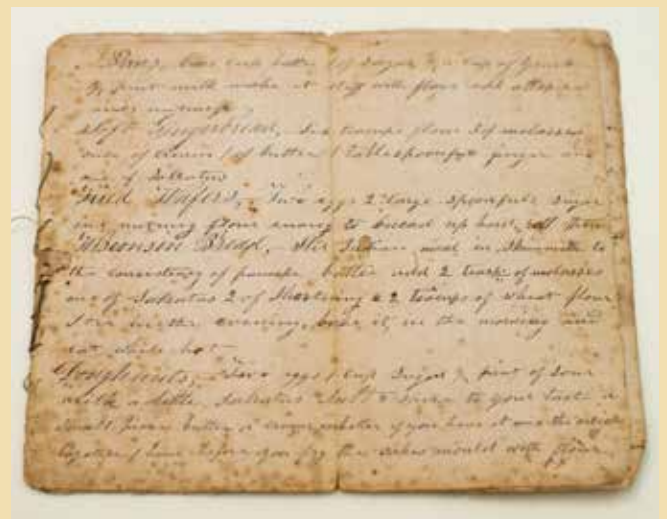 Buns, One cup butter 1 of sugar ½ a cup of yeast
½ pint milk make it stiff with flour add
nutmegs
Soft Gingerbread, Six teacups flour 3 of molasses
one of cream 1 of butter 1 tablespoonful ginger one
one of Saleratus
Fried Wafers, Two eggs 2 large spoonfuls sugar
one nutmeg flour enough to knead up hard, roll thin
Wisconsin Bread, Stir Indian meal in Skim milk to
the consistency of pancake batter add 2 teacups of molasses
one of Saleratus 2 of Shortning & 2 teacups of wheat flour
Stir in the evening, bake it in the morning and
eat while hot
Doughnuts, Two eggs 1 cup Sugar ½ pint of Sour
milk a little Saleratus Salt & Spice to your taste a
Small piece butter is if you have it mix the
together 1 hour before you fry the cakes mould with flour